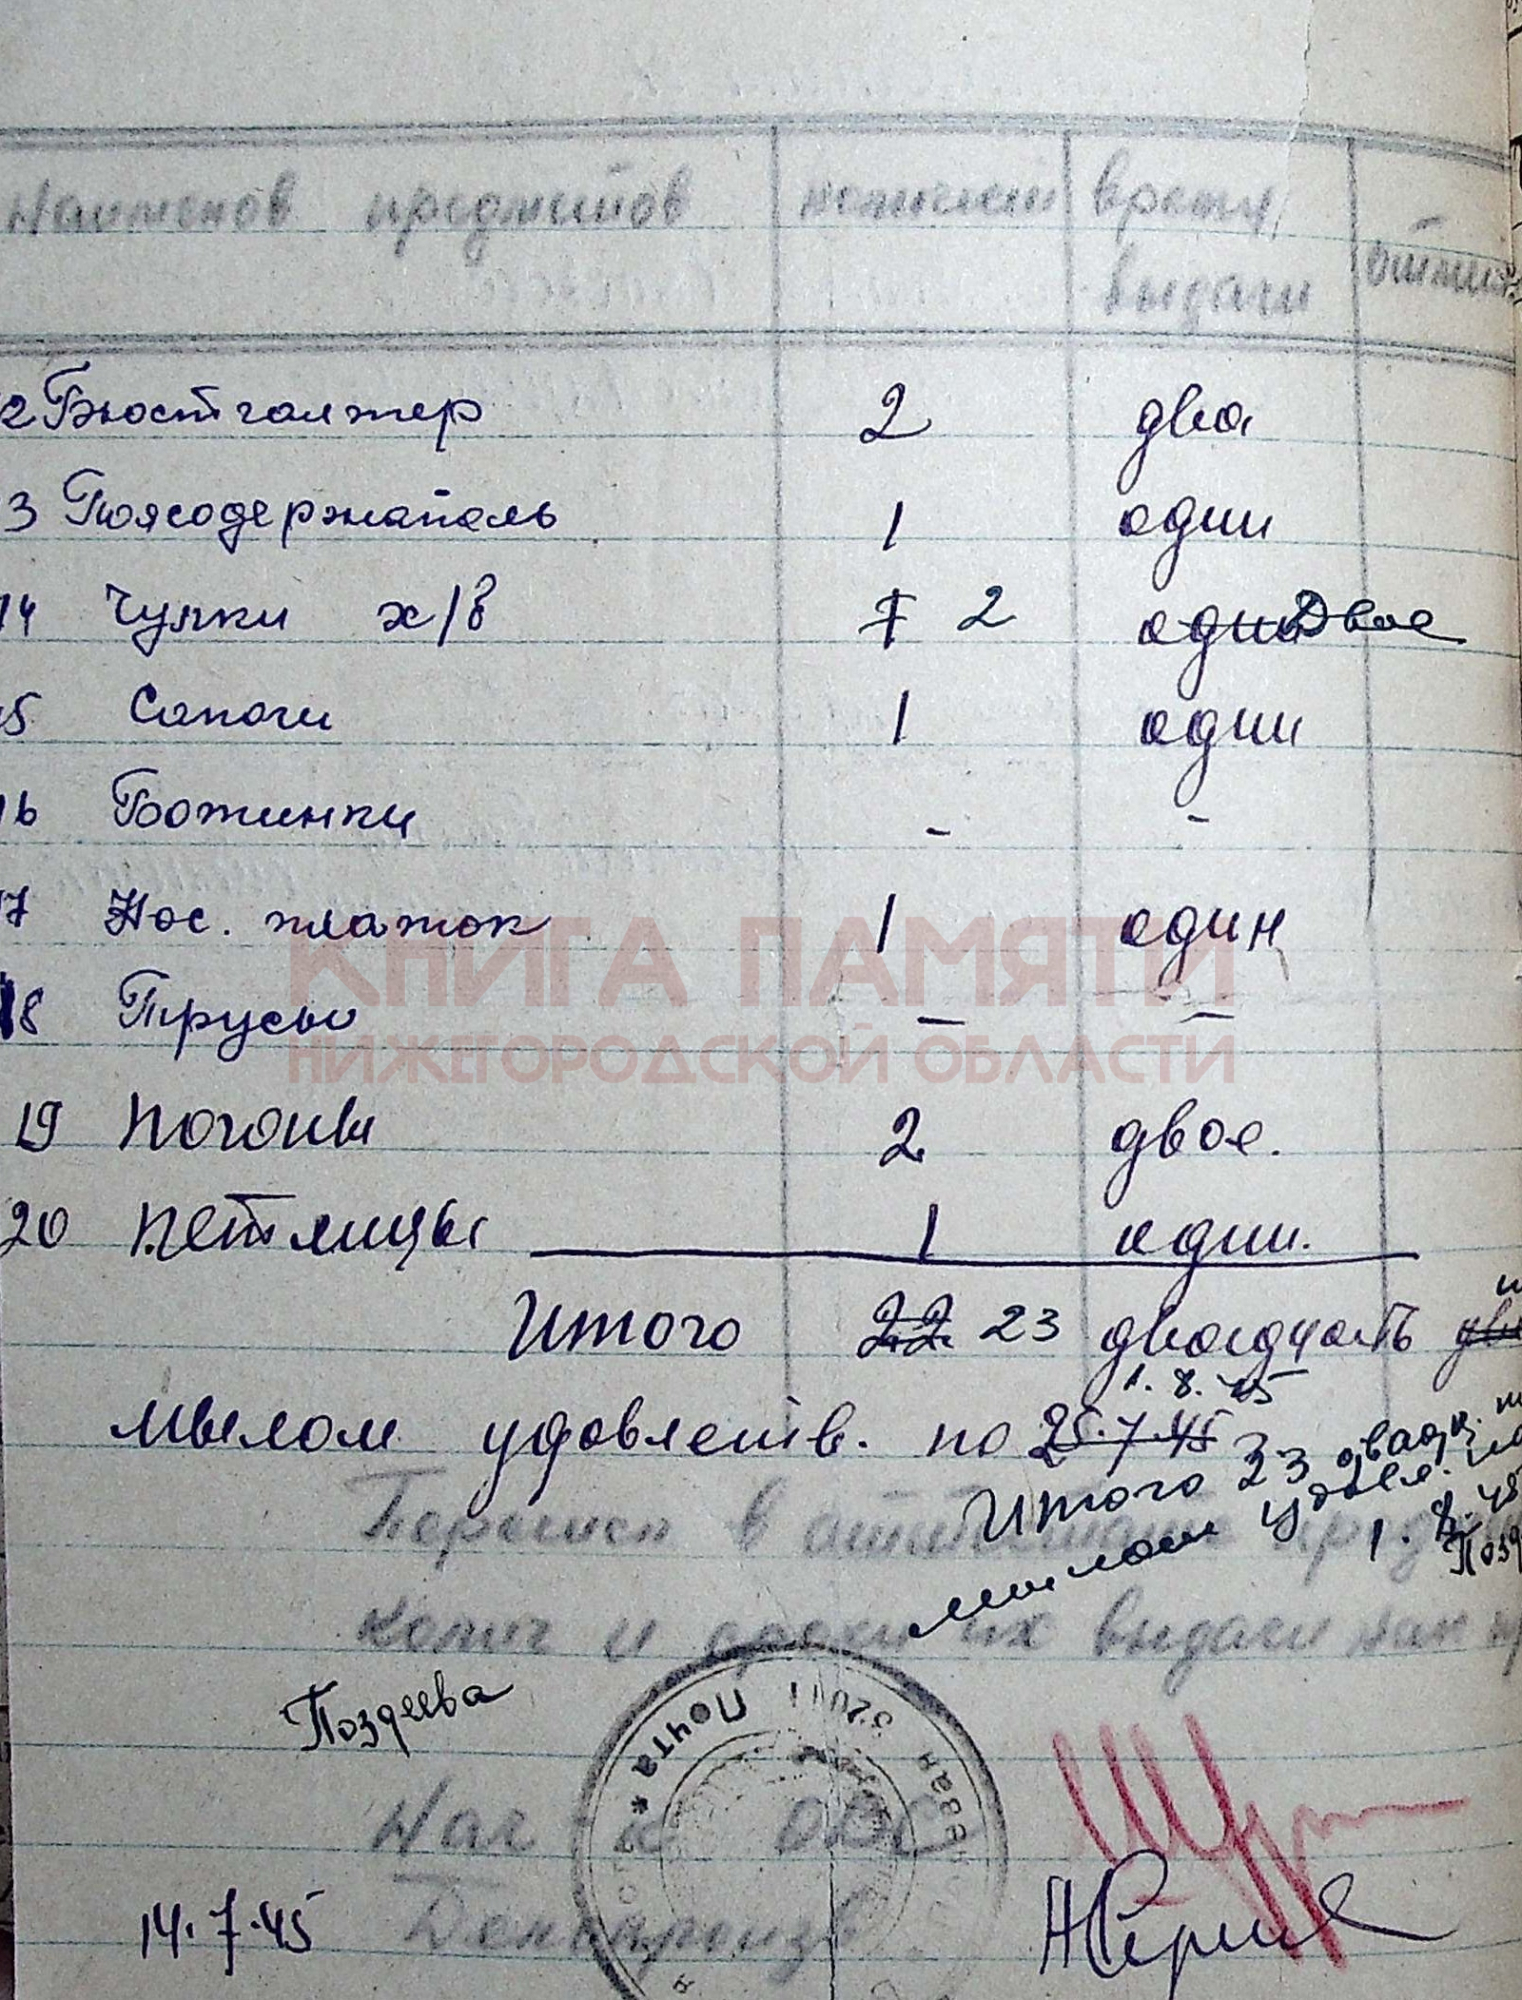 Наименов предметов количест время выдачи
2 Бюстгалтер 2 два
3 Поясодержатель 1 один
14 Чулки х/б 1 2 один Двое
15 Сапоги 1 один
16 Ботинки - -
17 Нос. платок 1 один
18 Трусы - -
19 Погоны 2 двое.
20 Петлицы 1 один.
Итого 22 23 двадцать
1. 8. 45
мылом удовлетв. по 25.7.45
Итого 23 двадц.
мылом удовл.
1. 8. 45
Поздеева
Нач
14.7.45
Почта *
КНИГА ПАМЯТИ
НИЖЕГОРОДСКОЙ ОБЛАСТИ